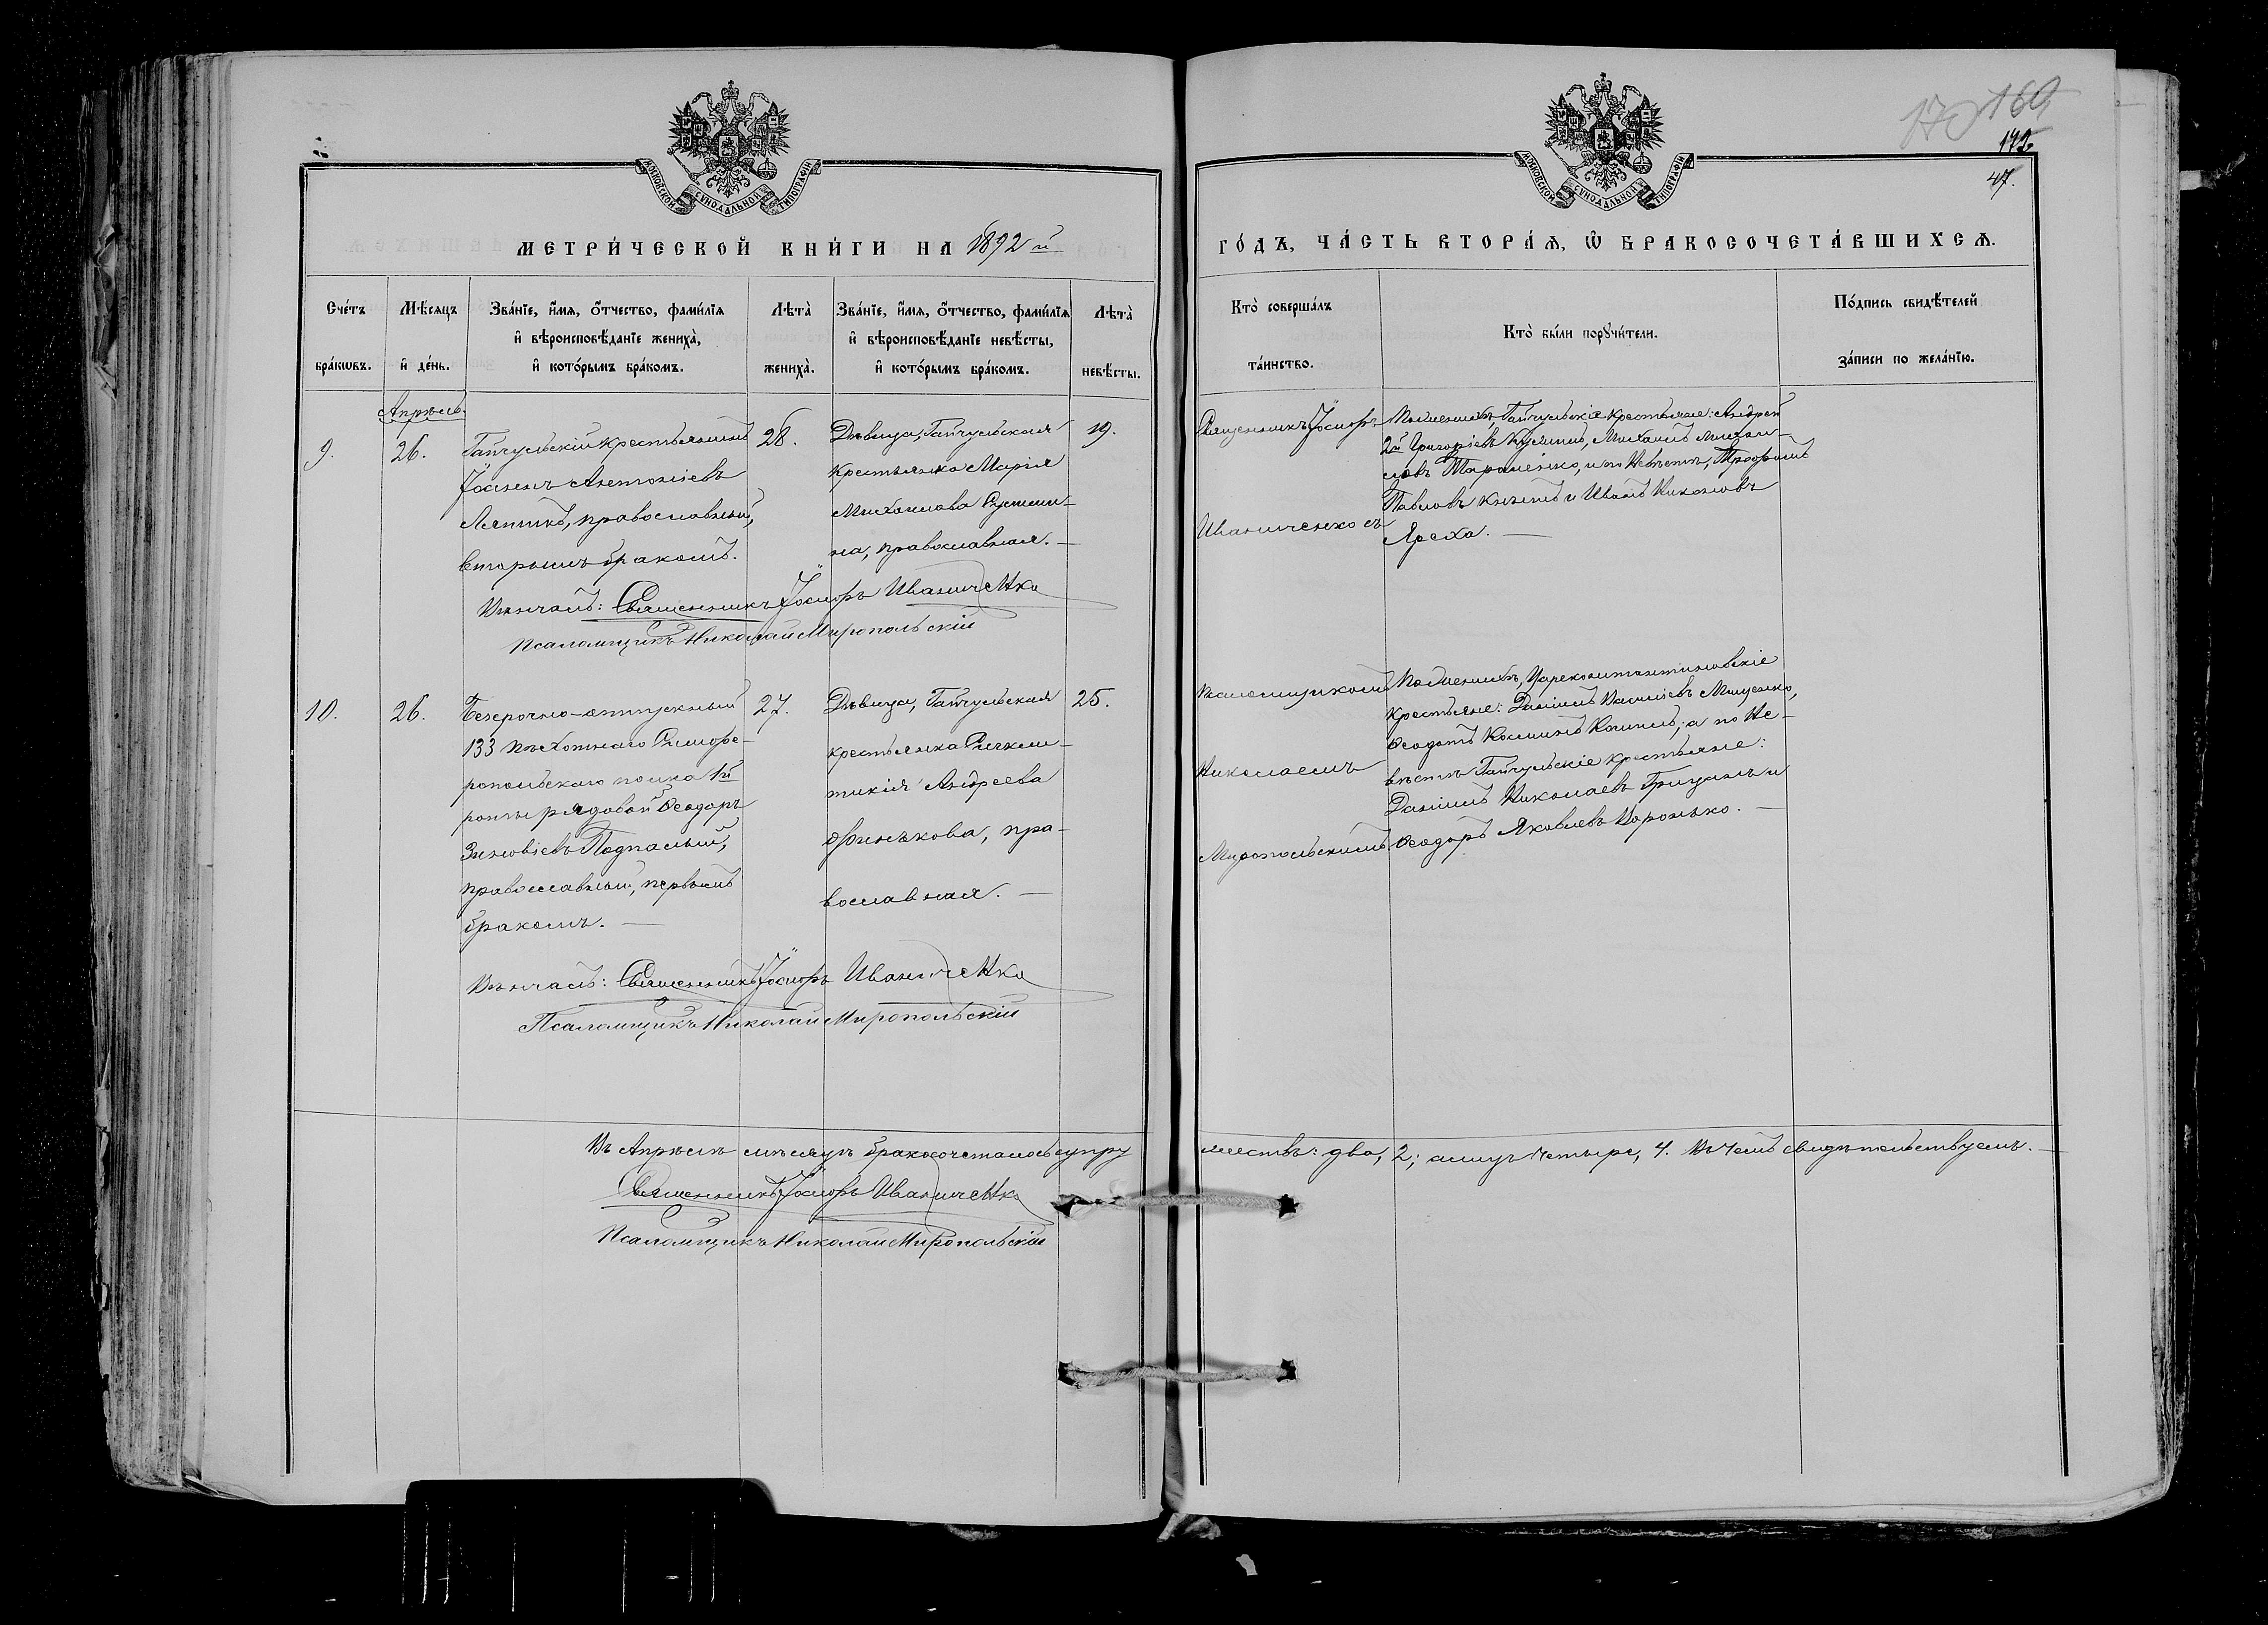 МОСКОВСКОЙ СУНОДАЛЬНОЙ ТИПОГРАФІИ
МЕТРИ́ЧЕСКОЙ КНИ́ГИ НА 1892 й
Сче́тъ бра́кωвъ.
Мѣ́сѧцъ и҆ де́нь.
Зва́нїе, и҆́мѧ, ѻ҆́тчество, фами́лїѧ
и҆ вѣроисповѣ́данїе жениха̀,
и҆ кото́рымъ бра́комъ.
Лѣта̀ жениха̀.
Зва́нїе, и҆́мѧ, ѻ҆́тчество, фами́лїѧ
и҆ вѣроисповѣ́данїе невѣ́сты,
и҆ кото́рымъ бра́комъ.
Лѣта̀ невѣ́сты.
Апрѣль.
9.
26.
Гайчульскій крестьянинъ
Іоаннъ Антоніевъ
Ляпинъ, православный,
вторымъ бракомъ.
28.
Дѣвица, Гайчульская
крестьянка Марія
Михаилова
на, православная. —
19.
Вѣнчалъ: Священникъ Іосифъ Иваниченко
Псаломщикъ Николай Миропольскій
10.
26.
Безсрочно-отпускный
133 пѣхотнаго Симфе-
ропольскаго полка 1й
роты рядовой Ѳеодоръ
Зиновіевъ Подпалый,
православный, первымъ
бракомъ. —
27.
Дѣвица, Гайчульская
крестьянка Синкли-
тикія Андреева
Финькова, пра-
вославная. —
25.
Вѣнчалъ: Священникъ Іосифъ Иваниченко
Псаломщикъ Николай Миропольскій
Въ Апрѣлѣ мѣсяцѣ бракосочеталось супру
Священникъ Іосифъ Иваниченко
Псаломщикъ Николай Миропольскій
170 160
172
47.
МОСКОВСКОЙ СУНОДАЛЬНОЙ ТИПОГРАФІИ
ГО́ДЪ, ЧА́СТЬ ВТОРА́Ѧ, Ѡ҆ БРАКОСОЧЕТА́ВШИХСѦ.
Кто̀ соверша́лъ
та́инство.
Кто̀ бы́ли порꙋчи́тели.
По́дпись свидѣ́телей
за́писи по жела́нїю.
Священникъ Іосифъ
Иваниченко съ
По женихѣ, Гайчульскіе крестьяне: Андрей
2й Григоріевъ Михаилъ Михаи-
ловъ и по невѣстѣ, Трофимъ
Павловъ и Иванъ Никоновъ
Яреха. —
Псаломщикомъ
Николаемъ
Миропольскимъ
По женихѣ, Цареконстантиновскіе
крестьяне: Даніилъ Василіевъ Мищенко,
Ѳеодотъ а по Не-
вѣстѣ Гайчульскіе крестьяне:
Даніилъ Николаевъ Грицай и
Ѳеодоръ Яковлевъ Воронько. —
жествъ: два, 2; а лицъ четыре, 4. Въ чемъ свидѣтельствуемъ. —